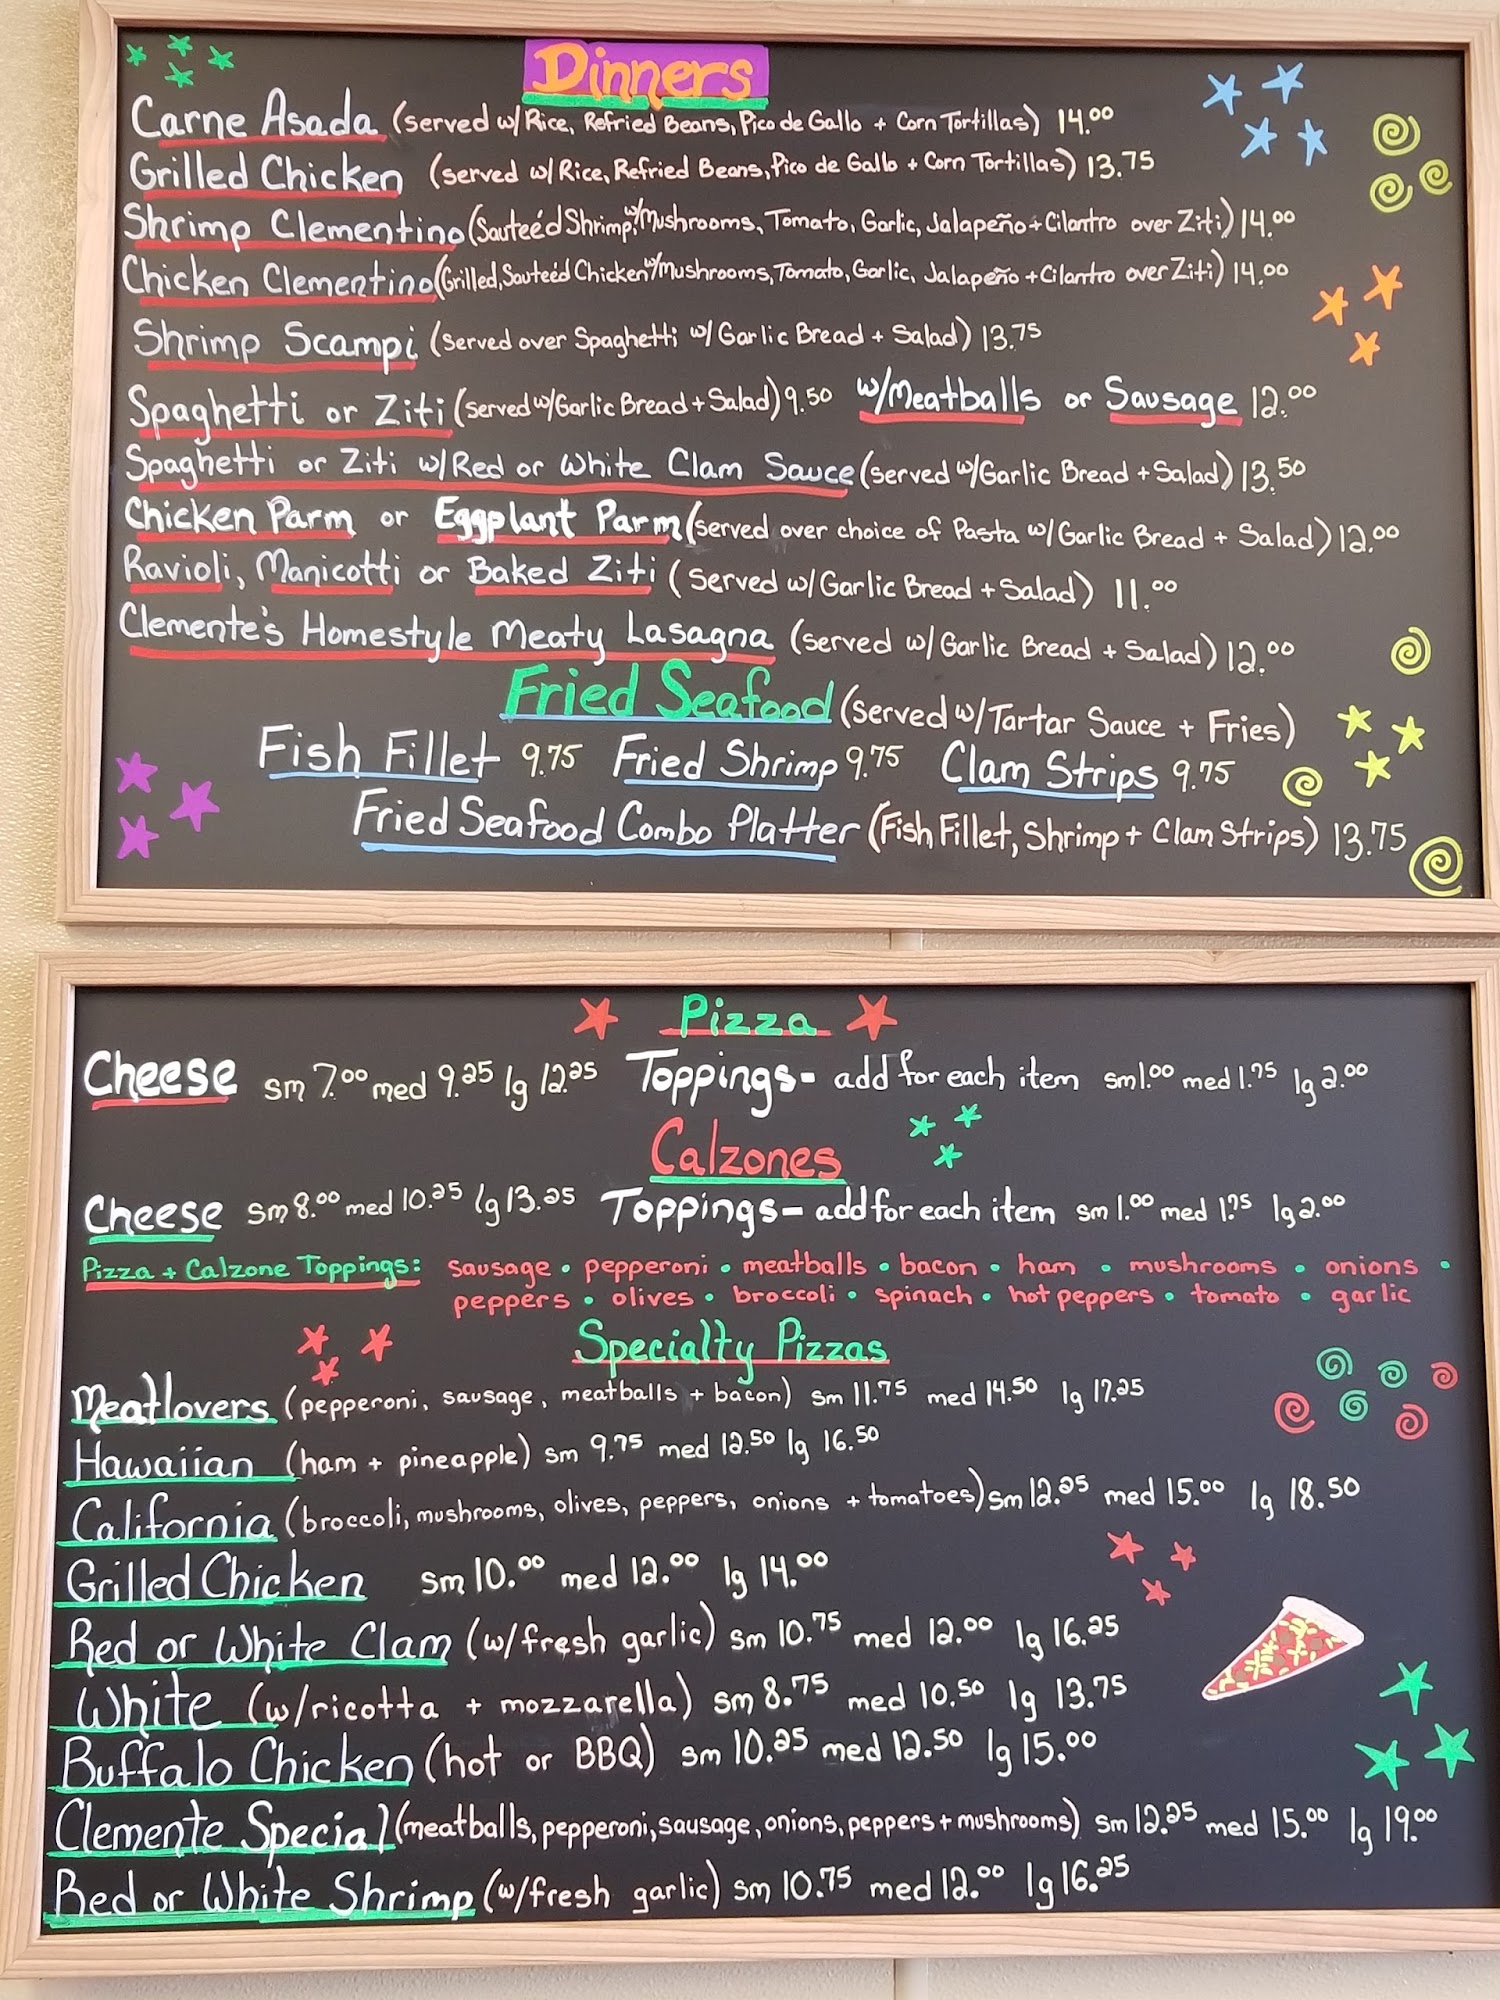 Dinners
Carne Asada (served w/Rice, Refried Beans, Pico de Gallo + Corn Tortillas) 14.00
Grilled Chicken (served w/Rice, Refried Beans, Pico de Gallo + Corn Tortillas) 13.75
Shrimp Clementino (Sauteéd Shrimp, w/Mushrooms, Tomato, Garlic, Jalapeño + Cilantro over Ziti) 14.00
Chicken Clementino (Grilled, Sauteéd Chicken w/Mushrooms, Tomato, Garlic, Jalapeño + Cilantro over Ziti) 14.00
Shrimp Scampi (served over Spaghetti w/Garlic Bread + Salad) 13.75
Spaghetti or Ziti (served w/Garlic Bread + Salad) 9.50 w/Meatballs or Sausage 12.00
Spaghetti or Ziti w/Red or White Clam Sauce (served w/Garlic Bread + Salad) 13.50
Chicken Parm or Eggplant Parm (served over choice of Pasta w/Garlic Bread + Salad) 12.00
Ravioli, Manicotti or Baked Ziti (served w/Garlic Bread + Salad) 11.00
Clemente's Homestyle Meaty Lasagna (served w/Garlic Bread + Salad) 12.00
Fried Seafood (served w/Tartar Sauce + Fries)
Fish Fillet 9.75 Fried Shrimp 9.75 Clam Strips 9.75
Fried Seafood Combo Platter (Fish Fillet, Shrimp + Clam Strips) 13.75
Pizza
Cheese sm 7.00 med 9.25 lg 12.25 Toppings- add for each item sm 1.00 med 1.75 lg 2.00
Calzones
Cheese sm 8.00 med 10.25 lg 13.25 Toppings- add for each item sm 1.00 med 1.75 lg 2.00
Pizza + Calzone Toppings: sausage • pepperoni • meatballs • bacon • ham • mushrooms • onions •
peppers • olives • broccoli • spinach • hot peppers • tomato • garlic
Specialty Pizzas
Meatlovers (pepperoni, sausage, meatballs + bacon) sm 11.75 med 14.50 lg 17.25
Hawaiian (ham + pineapple) sm 9.75 med 12.50 lg 16.50
California (broccoli, mushrooms, olives, peppers, onions + tomatoes) sm 12.25 med 15.00 lg 18.50
Grilled Chicken sm 10.00 med 12.00 lg 14.00
Red or White Clam (w/fresh garlic) sm 10.75 med 12.00 lg 16.25
White (w/ricotta + mozzarella) sm 8.75 med 10.50 lg 13.75
Buffalo Chicken (hot or BBQ) sm 10.25 med 12.50 lg 15.00
Clemente Special (meatballs, pepperoni, sausage, onions, peppers + mushrooms) sm 12.25 med 15.00 lg 19.00
Red or White Shrimp (w/fresh garlic) sm 10.75 med 12.00 lg 16.25